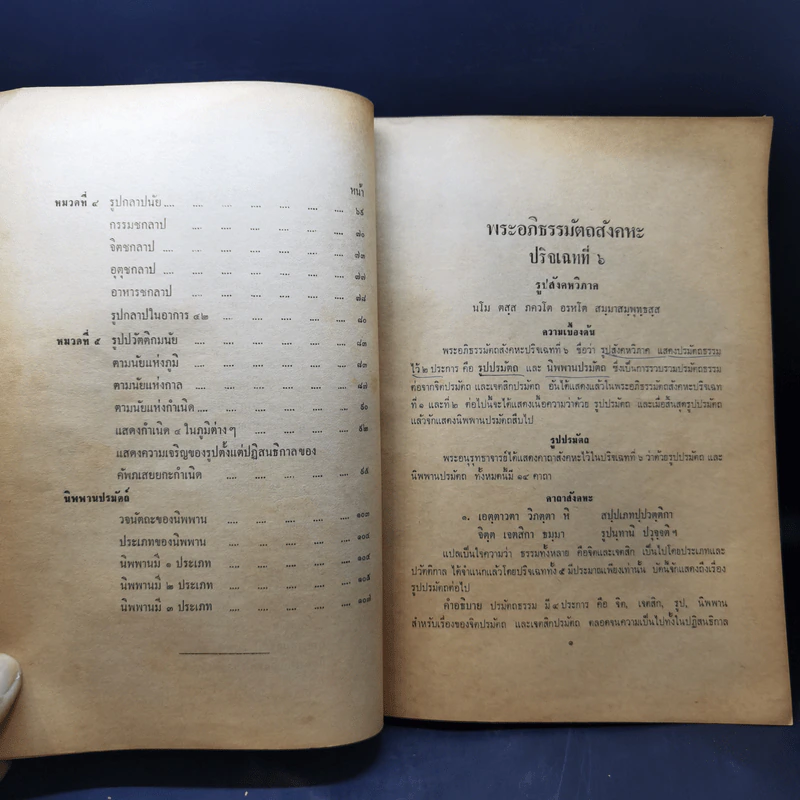 หน้า
หมวดที่ ๔ รูปกลาปนัย .... .... .... .... .... .... ๖๕
กรรมชกลาป .... .... .... .... .... ๗๐
จิตชกลาป .... .... .... .... .... ๗๓
อุตุชกลาป .... .... .... .... .... ๗๗
อาหารชกลาป .... .... .... .... .... ๗๘
รูปกลาปในอาการ ๔๒ .... .... .... .... ๘๐
หมวดที่ ๕ รูปปวัตติกมนัย .... .... .... .... .... ๘๓
ตามนัยแห่งภูมิ .... .... .... .... .... ๘๔
ตามนัยแห่งกาล .... .... .... .... .... ๘๗
ตามนัยแห่งกำเนิด .... .... .... .... .... ๙๐
แสดงกำเนิด ๔ ในภูมิต่าง ๆ .... .... .... ๙๒
แสดงความเจริญของรูปตั้งแต่ปฏิสนธิกาลของ
คัพภเสยยกะกำเนิด .... .... .... .... ๙๕
นิพพานปรมัตถ์
วจนัตถะของนิพพาน .... .... .... .... ๑๐๓
ประเภทของนิพพาน .... .... .... .... ๑๐๔
นิพพานมี ๑ ประเภท .... .... .... .... ๑๐๔
นิพพานมี ๒ ประเภท .... .... .... .... ๑๐๕
นิพพานมี ๓ ประเภท .... .... .... .... ๑๐๗
พระอภิธรรมัตถสังคหะ
ปริจเฉทที่ ๖
รูปสังคหวิภาค
นโม ตสฺส ภควโต อรหโต สมฺมาสมฺพุทฺธสฺส
ความเบื้องต้น
พระอภิธรรมัตถสังคหะปริจเฉทที่ ๖ ชื่อว่า รูปสังคหวิภาค แสดงปรมัตถธรรม
ไว้ ๒ ประการ คือ รูปปรมัตถ และ นิพพานปรมัตถ ซึ่งเป็นการรวบรวมปรมัตถธรรม
ต่อจากจิตปรมัตถ และเจตสิกปรมัตถ อันได้แสดงแล้วในพระอภิธรรมัตถสังคหะปริจเฉท
ที่ ๑ และที่ ๒ ต่อไปนี้จะได้แสดงเนื้อความว่าด้วย รูปปรมัตถ และเมื่อสิ้นสุดรูปปรมัตถ
แล้วจักแสดงนิพพานปรมัตถสืบไป
รูปปรมัตถ
พระอนุรุทธาจารย์ได้แสดงคาถาสังคหะไว้ในปริจเฉทที่ ๖ ว่าด้วยรูปปรมัตถ และ
นิพพานปรมัตถ ทั้งหมดนี้มี ๑๔ คาถา
คาถาสังคหะ
๑. เอตฺตาวตา วิภตฺตา หิ สปฺปเภทปฺปวตฺติกา
จิตฺต เจตสิกา ธมฺมา รูปนฺทานิ ปวุจฺจติ ฯ
แปลเป็นใจความว่า ธรรมทั้งหลาย คือจิตและเจตสิก เป็นไปโดยประเภทและ
ปวัตติกาล ได้จำแนกแล้วโดยปริจเฉททั้ง ๕ มีประมาณเพียงเท่านั้น บัดนี้จักแสดงถึงเรื่อง
รูปปรมัตถต่อไป
คำอธิบาย ปรมัตถธรรม มี ๔ ประการ คือ จิต, เจตสิก, รูป, นิพพาน
สำหรับเรื่องของจิตปรมัตถ และเจตสิกปรมัตถ ตลอดจนความเป็นไปทั้งในปฏิสนธิกาล
๑